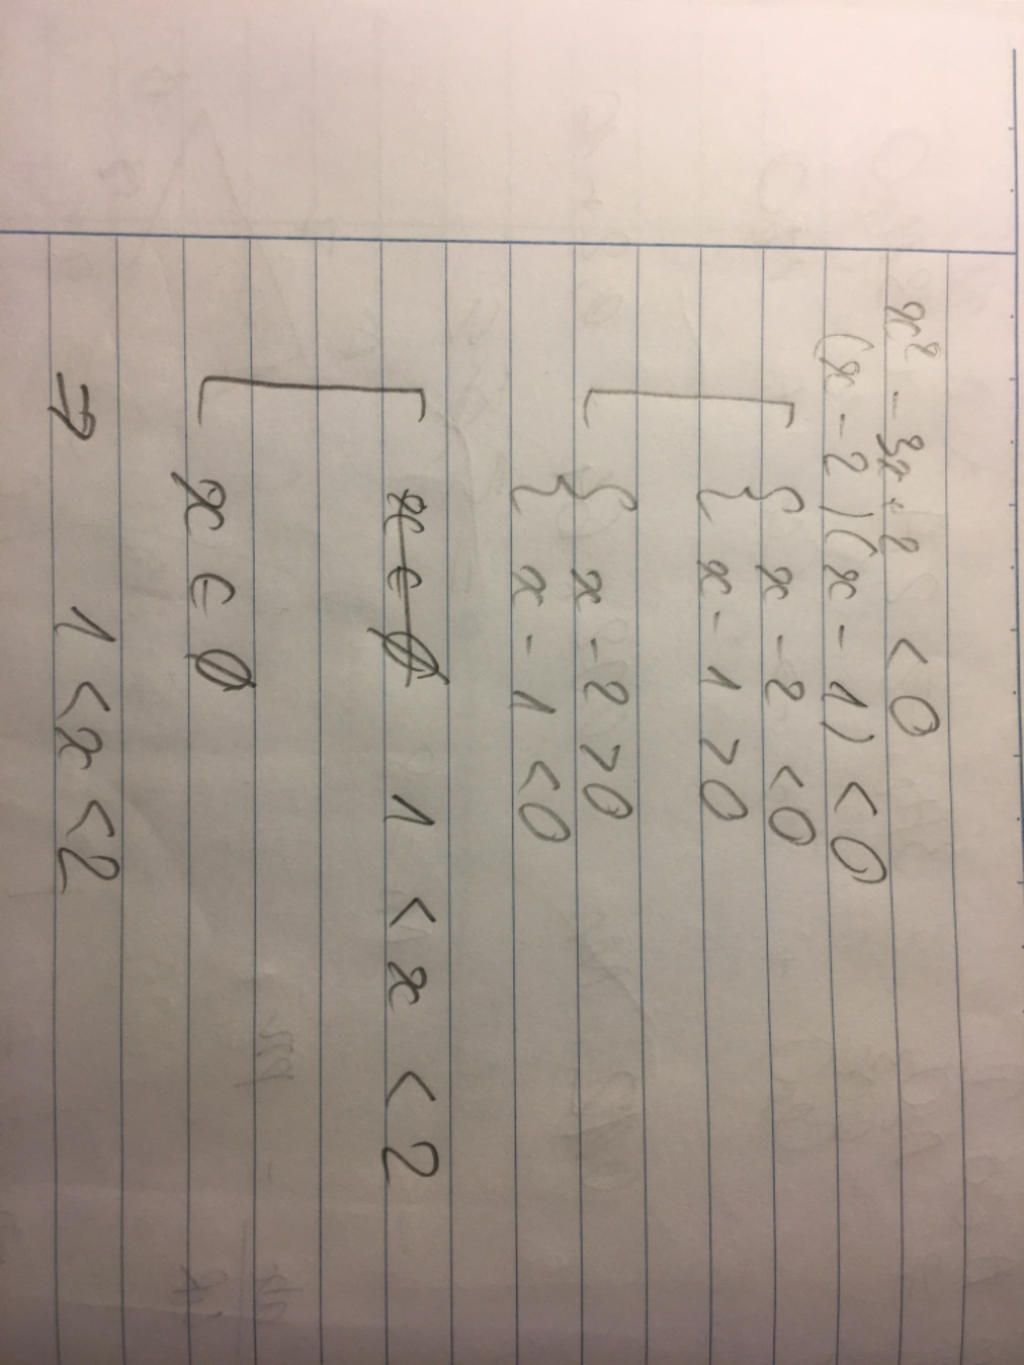 x² - 3x + 2 < 0
(x - 2)(x - 1) < 0
[ { x - 2 < 0
{ x - 1 > 0
{ x - 2 > 0
{ x - 1 < 0
[ x ∈ ∅ 1 < x < 2
x ∈ ∅
⇒ 1 < x < 2